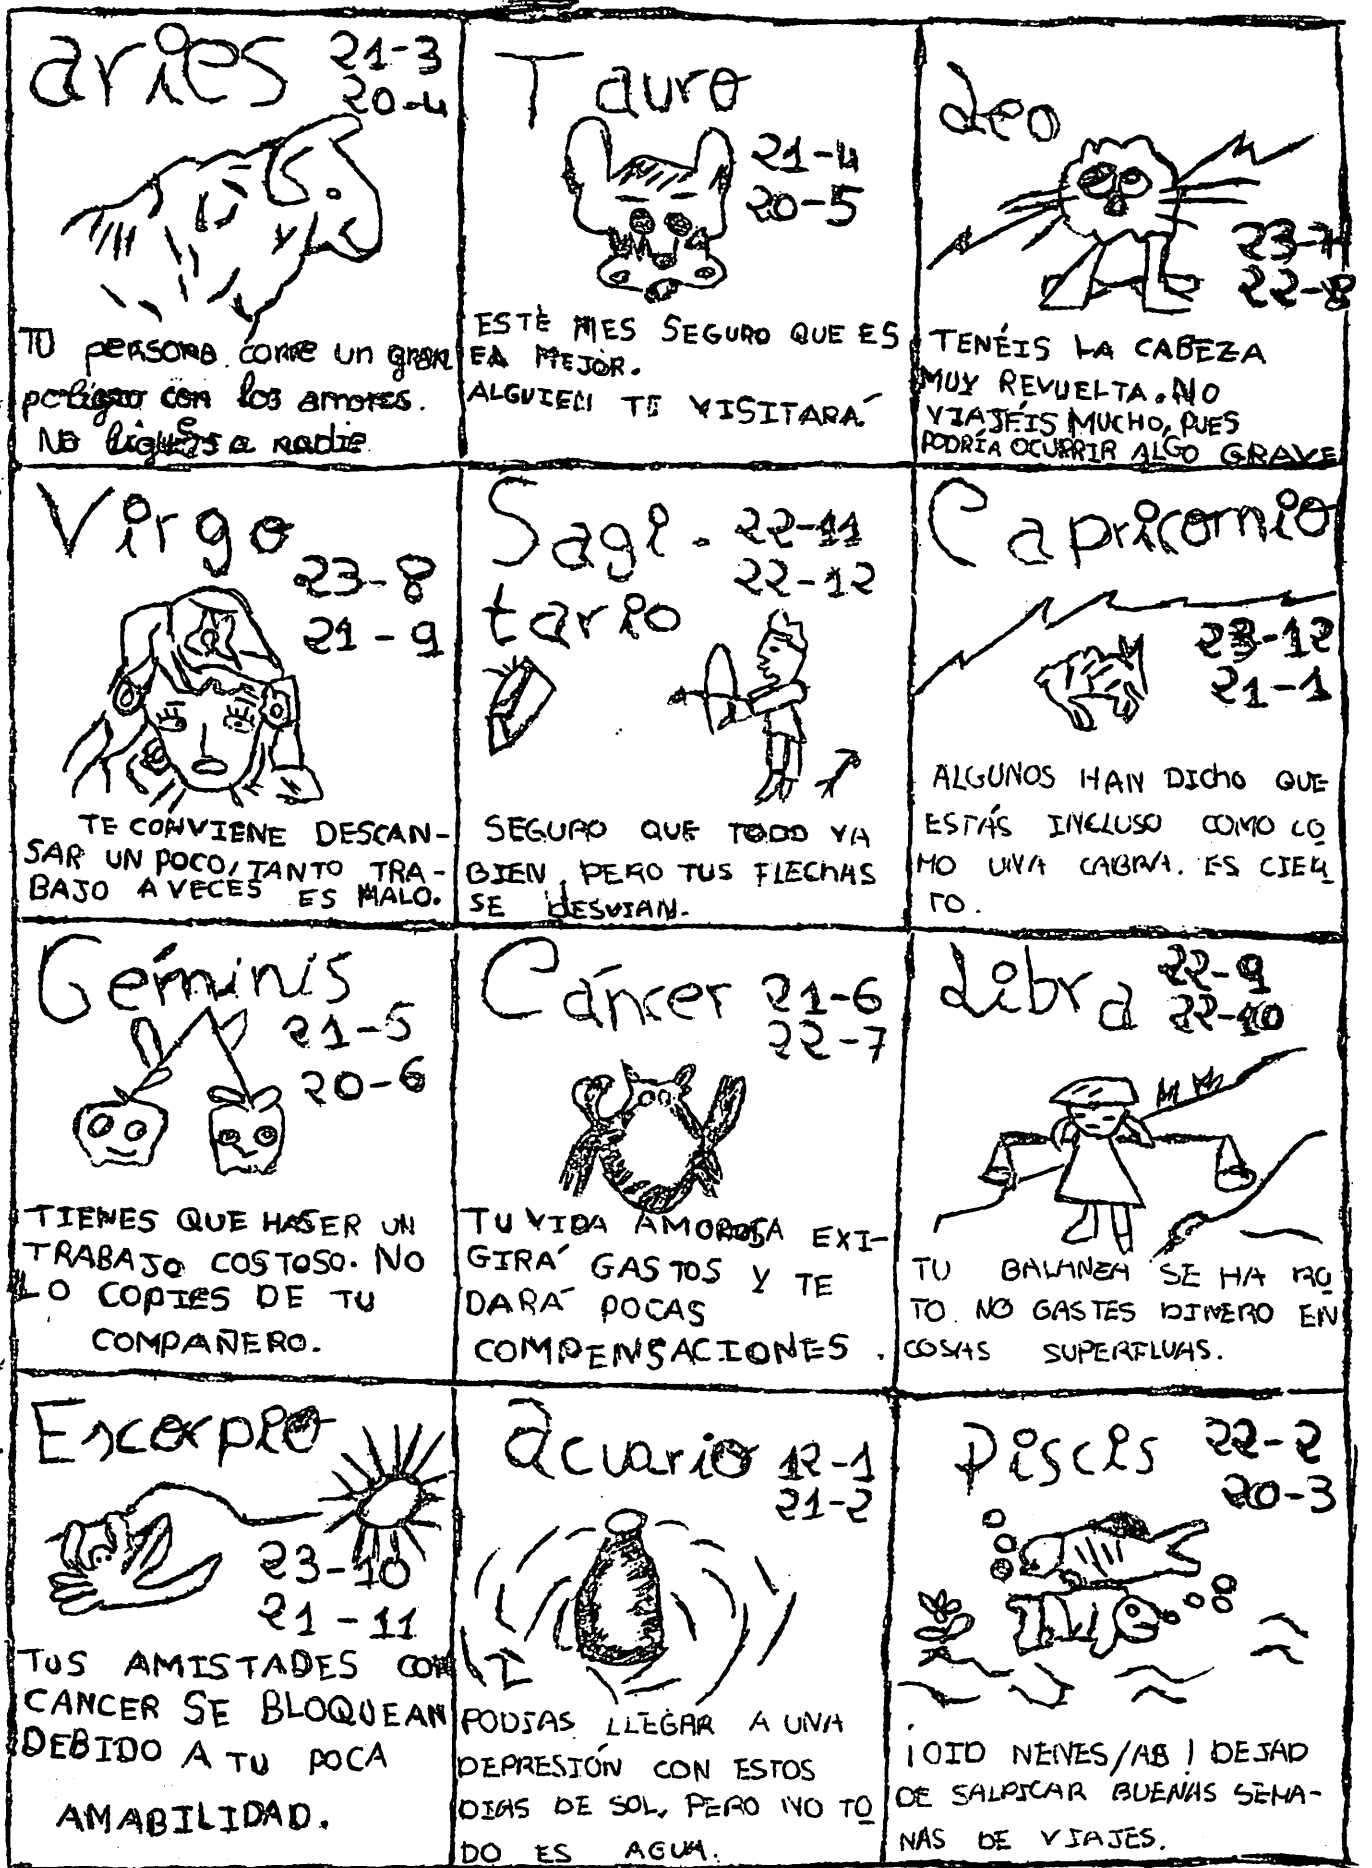 aries 21-3
20-4
TU persona corre un gran
peligro con los amores.
No ligues a nadie
Tauro
21-4
20-5
ESTE MES SEGURO QUE ES
EA MEJOR.
ALGUIEN TE VISITARÁ
Leo
23-7
22-8
TENÉIS LA CABEZA
MUY REVUELTA. NO
VIAJÉIS MUCHO, PUES
PODRÍA OCURRIR ALGO GRAVE
Virgo
23-8
21-9
TE CONVIENE DESCAN-
SAR UN POCO, TANTO TRA-
BAJO A VECES ES MALO.
Sagi- 22-11
22-12
tario
SEGURO QUE TODO VA
BIEN, PERO TUS FLECHAS
SE DESVIAN.
Capricornio
23-12
21-1
ALGUNOS HAN DICHO QUE
ESTÁS INCLUSO COMO CO
MO UNA CABRA. ES CIER
TO.
Géminis
21-5
20-6
TIENES QUE HASER UN
TRABAJO COSTOSO. NO
LO COPIES DE TU
COMPAÑERO.
Cáncer 21-6
22-7
TU VIDA AMOROSA EXI-
GIRÁ GASTOS Y TE
DARÁ POCAS
COMPENSACIONES.
Libra 22-9
22-10
TU BALANZA SE HA RO
TO. NO GASTES DINERO EN
COSAS SUPERFLUAS.
Escorpio
23-10
21-11
TUS AMISTADES CON
CANCER SE BLOQUEAN
DEBIDO A TU POCA
AMABILIDAD.
acuario 12-1
21-2
PODIAS LLEGAR A UNA
DEPRESIÓN CON ESTOS
DIAS DE SOL, PERO NO TO
DO ES AGUA.
Piscis 22-2
20-3
¡OID NENES/AS! DEJAD
DE SALPICAR BUENAS SEMA-
NAS DE VIAJES.